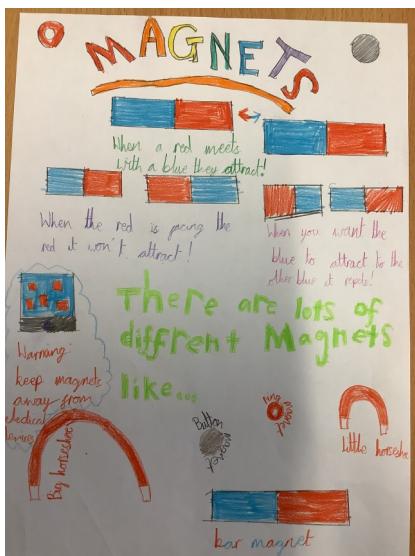 MAGNETS
When a red meets
with a blue they attract!
When the red is facing the
red it won't attract!
When you want the
blue to attract to the
other blue it repels!
There are lots of
diffrent Magnets
like...
Warning:
keep magnets
away from
Medical
devices
Big horseshoe
Button
magnet
ring
magnet
little horseshoe
bar magnet